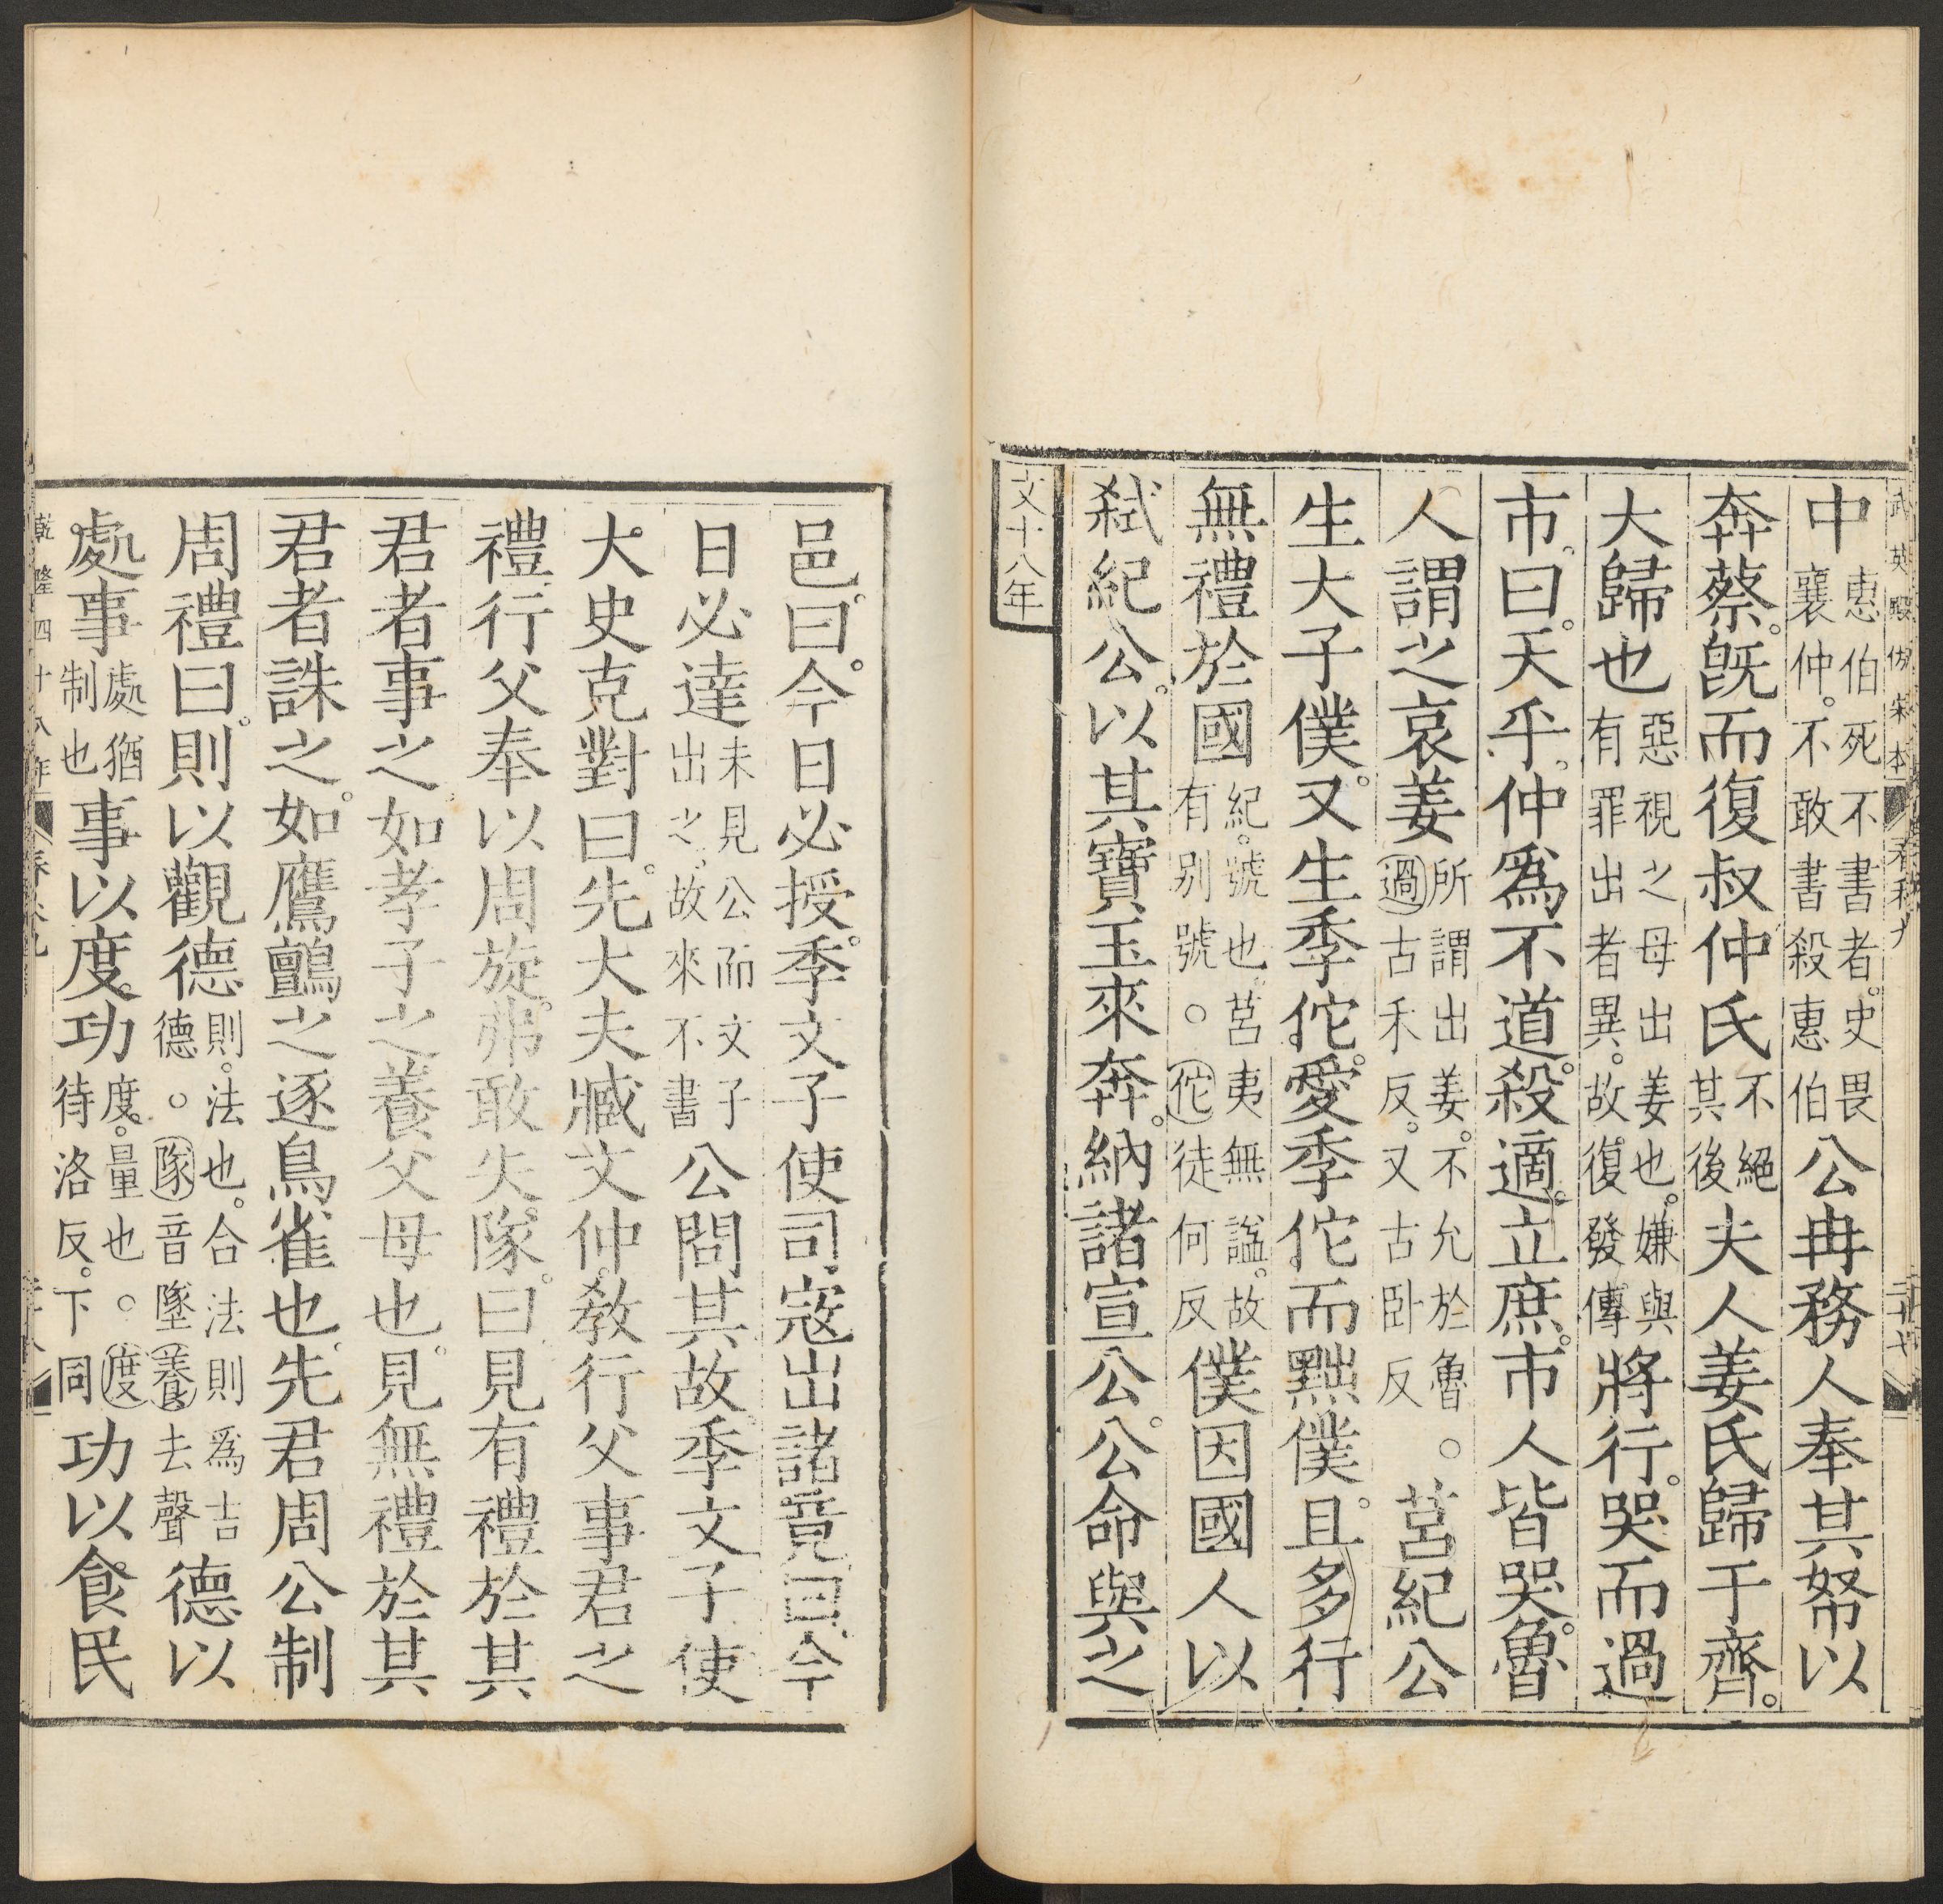 武英殿仿宋本
春秋九
二十七
中惠伯死不書者。史畏襄仲。不敢書殺惠伯公冉務人奉其帑以
奔蔡。旣而復叔仲氏不絕其後夫人姜氏歸于齊。
大歸也惡視之母出姜也。嫌與有罪出者異。故復發傳將行。哭而過
市。曰。天乎。仲爲不道。殺適。立庶。市人皆哭。魯
人謂之哀姜所謂出姜。不允於魯。○過古禾反。又古卧反莒紀公
生大子僕。又生季佗。愛季佗而黜僕。且多行
無禮於國紀。號也。莒夷無謚。故有别號。○佗徒何反僕因國人以
弒紀公。以其寶玉來奔。納諸宣公。公命與之
文十八年
邑。曰。今日必授。季文子使司寇出諸竟曰今
日必達未見公而文子出之。故來不書公問其故。季文子使
大史克對曰。先大夫臧文仲。教行父事君之
禮行父奉以周旋。弗敢失隊。曰。見有禮於其
君者事之。如孝子之養父母也。見無禮於其
君者誅之。如鷹鸇之逐鳥雀也。先君周公制
周禮曰。則以觀德則。法也。合法則爲吉德。○隊音墜養去聲德以
處事處猶制也事以度。功度。量也。○度待洛反。下同功以食民
乾隆四十八年
春秋九
二十八